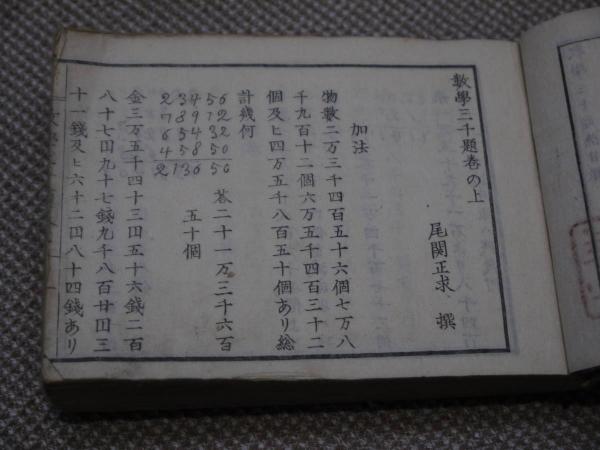 數學三千題卷の上
尾関正求 撰
加法
物數二万三千四百五十六個七万八
千九百十二個六万五千四百三十二
個及ヒ四万五千八百五十個あり総
計幾何
23456
78912
65432
45850
213650
荅二十一万三千六百
五十個
金三万五千四十三円五十六錢二百
八十七円九十七錢九千八百廿円三
十一錢及ヒ六十二円八十四錢あり